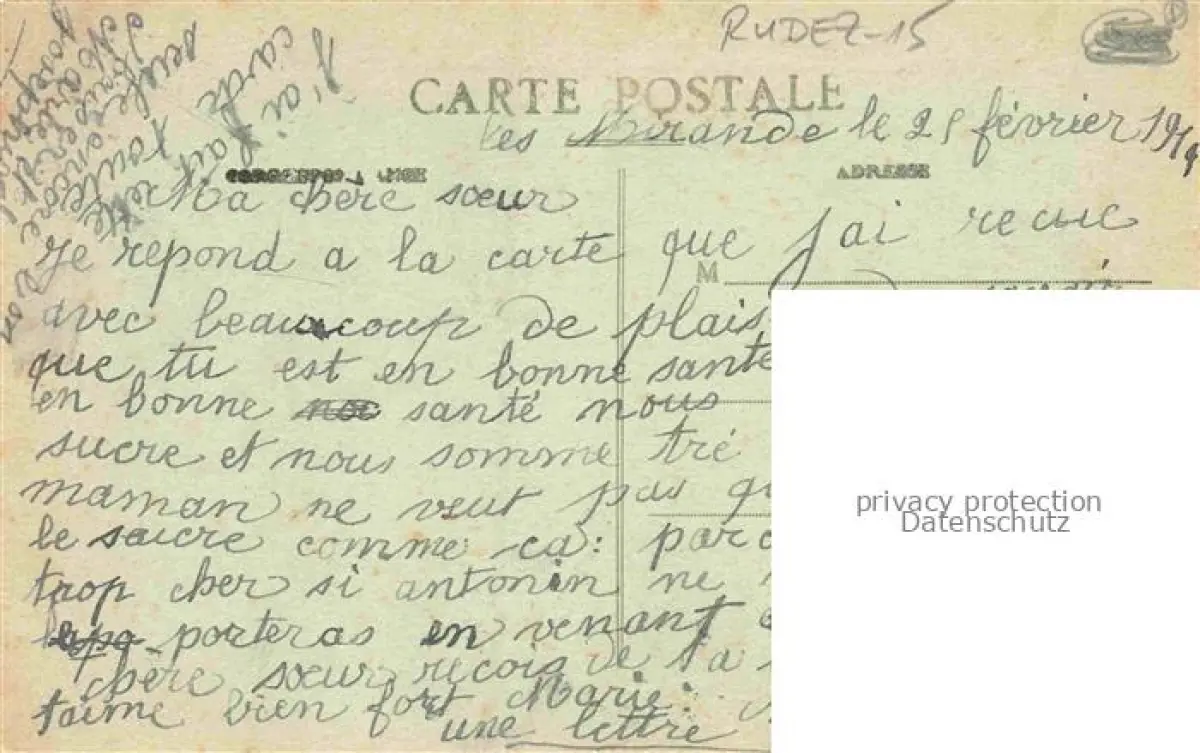 RUDEZ-15
CARTE POSTALE
les Mirande le 25 février 19
CORRESPONDANCE
ADRESSE
Ma chere sœur
Je repond a la carte que j'ai recue
M
avec beaucoup de plais
que tu est en bonne santé
en bonne santé nous
sucre et nous somme tré
maman ne veut pas q
le sucre comme ca: parc
trop cher si antonin ne
porteras en venant
chère sœur recois de ta
t'aime bien fort Marie:
une lettre
J'ai fait cette
carte toute
seule
privacy protection
Datenschutz